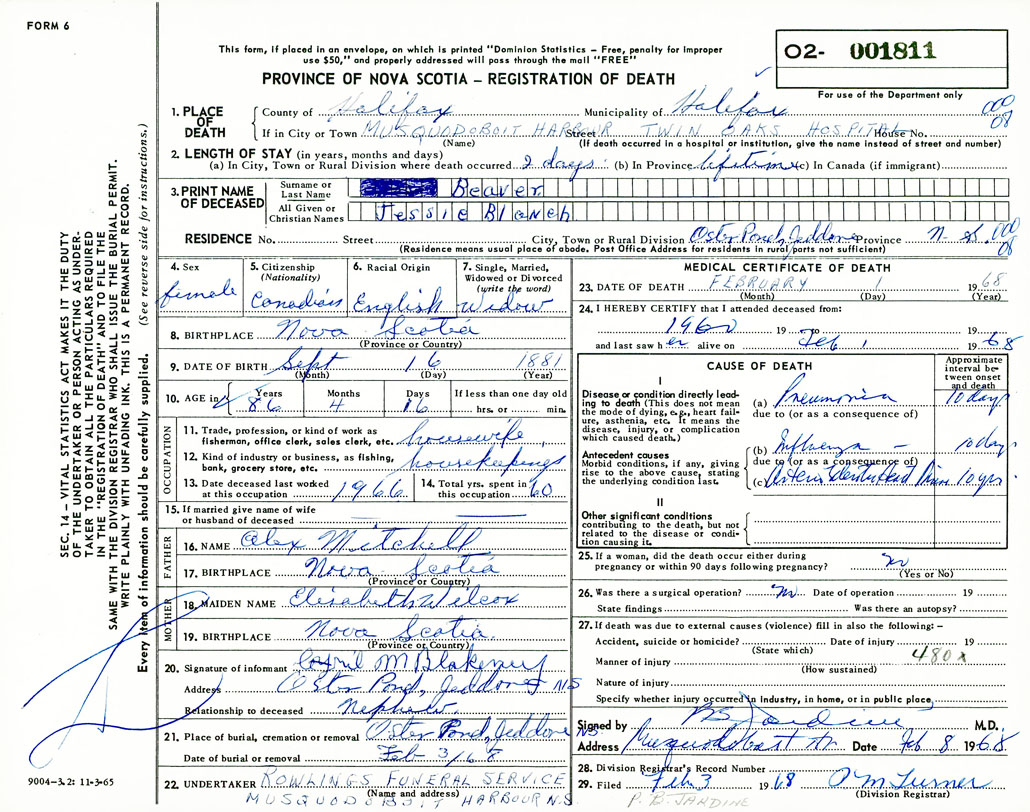 FORM 6
This form, if placed in an envelope, on which is printed "Dominion Statistics – Free, penalty for improper
use $50," and properly addressed will pass through the mail "FREE"
PROVINCE OF NOVA SCOTIA – REGISTRATION OF DEATH
O2- 001811
For use of the Department only
1. PLACE OF DEATH
County of Halifax Municipality of Halifax 000 08
If in City or Town MUSQUODOBOIT HARBOUR Street TWIN OAKS HOSPITAL House No.
(Name) (If death occurred in a hospital or institution, give the name instead of street and number)
2. LENGTH OF STAY (in years, months and days)
(a) In City, Town or Rural Division where death occurred 2 days (b) In Province lifetime (c) In Canada (if immigrant)
3. PRINT NAME OF DECEASED
Surname or Last Name Beaver
All Given or Christian Names Jessie Blanch
RESIDENCE No. Street City, Town or Rural Division Oster Pond, Jeddore Province N.S. 000 08
(Residence means usual place of abode. Post Office Address for residents in rural parts not sufficient)
4. Sex female
5. Citizenship (Nationality) Canadian
6. Racial Origin English
7. Single, Married, Widowed or Divorced (write the word) Widow
8. BIRTHPLACE Nova Scotia
(Province or Country)
9. DATE OF BIRTH Sept 16 1881
(Month) (Day) (Year)
10. AGE in Years 86 Months 4 Days 16 If less than one day old hrs. or min.
OCCUPATION
11. Trade, profession, or kind of work as fisherman, office clerk, sales clerk, etc. housewife
12. Kind of industry or business, as fishing, bank, grocery store, etc. housekeeping
13. Date deceased last worked at this occupation 1966 14. Total yrs. spent in this occupation 60
15. If married give name of wife or husband of deceased
FATHER
16. NAME Alex Mitchell
17. BIRTHPLACE Nova Scotia
(Province or Country)
MOTHER
18. MAIDEN NAME Elisabeth Wilcox
19. BIRTHPLACE Nova Scotia
(Province or Country)
20. Signature of informant M Blakeney
Address Oster Pond, Jeddore NS
Relationship to deceased Nephew
21. Place of burial, cremation or removal Oster Pond, Jeddore NS
Date of burial or removal Feb 3/68
22. UNDERTAKER ROWLINGS FUNERAL SERVICE
(Name and address)
MUSQUODOBOIT HARBOUR N.S.
MEDICAL CERTIFICATE OF DEATH
23. DATE OF DEATH FEBRUARY 1 1968
(Month) (Day) (Year)
24. I HEREBY CERTIFY that I attended deceased from:
1960 19 to Feb 1 19
and last saw her alive on Feb 1 1968
CAUSE OF DEATH
Approximate interval between onset and death
I
Disease or condition directly leading to death (This does not mean the mode of dying, e.g., heart failure, asthenia, etc. It means the disease, injury, or complication which caused death.)
(a) Pneumonia 10 days
due to (or as a consequence of)
Antecedent causes
Morbid conditions, if any, giving rise to the above cause, stating the underlying condition last.
(b) Influenza – 10 days
due to (or as a consequence of)
(c) 10 yrs
II
Other significant conditions contributing to the death, but not related to the disease or condition causing it.
25. If a woman, did the death occur either during pregnancy or within 90 days following pregnancy? no
(Yes or No)
26. Was there a surgical operation? no Date of operation 19
State findings Was there an autopsy?
27. If death was due to external causes (violence) fill in also the following: –
Accident, suicide or homicide? Date of injury 19
(State which)
480x
Manner of injury
(How sustained)
Nature of injury
Specify whether injury occurred in Industry, in home, or in public place
Signed by Jardine M.D.
Address Musquodoboit Hr NS Date Feb 8 1968
28. Division Registrar's Record Number
29. Filed Feb 3 1968 P M Turner
(Division Registrar)
P. B. JARDINE
SEC. 14 – VITAL STATISTICS ACT MAKES IT THE DUTY
OF THE UNDERTAKER OR PERSON ACTING AS UNDER-
TAKER TO OBTAIN ALL THE PARTICULARS REQUIRED
IN THE "REGISTRATION OF DEATH" AND TO FILE THE
SAME WITH THE DIVISION REGISTRAR WHO SHALL ISSUE THE BURIAL PERMIT.
WRITE PLAINLY WITH UNFADING INK. THIS IS A PERMANENT RECORD.
Every item of information should be carefully supplied. (See reverse side for instructions.)
9004-3.2: 11-3-65